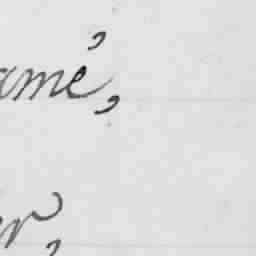 amé,
er,